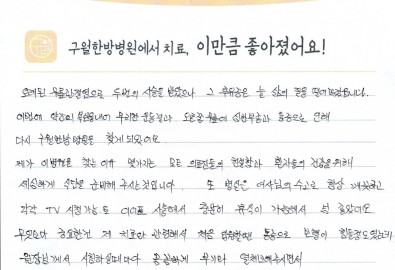 구월한방병원에서 치료, 이만큼 좋아졌어요!
오래된 무릎관절염으로 두번의 시술을 받았으나 그 후유증은 늘 삶의 질을 떨어뜨렸습니다.
이번에 무리한 운동과 오른쪽 통증으로 인해
다시 구월한방병원을 찾게 되었어요
제가 이병원을 찾는 이유 몇가지는 모든 의료진들의 친절함과 환자들의 건강을 위해
세심하게 식단을 준비해 주시는것입니다. 또 병실은 여사님의 수고로 항상 깨끗하고
각각 TV 시청가능토록 이어폰 사용해서 조용히 휴식이 가능해서 넘 좋았어요
무엇보다 중요한건 제 치료와 관련해서 처음 입원할때 통증으로 보행이 힘들정도였는데
원장님께서 시침하실때마다 꼼꼼하게